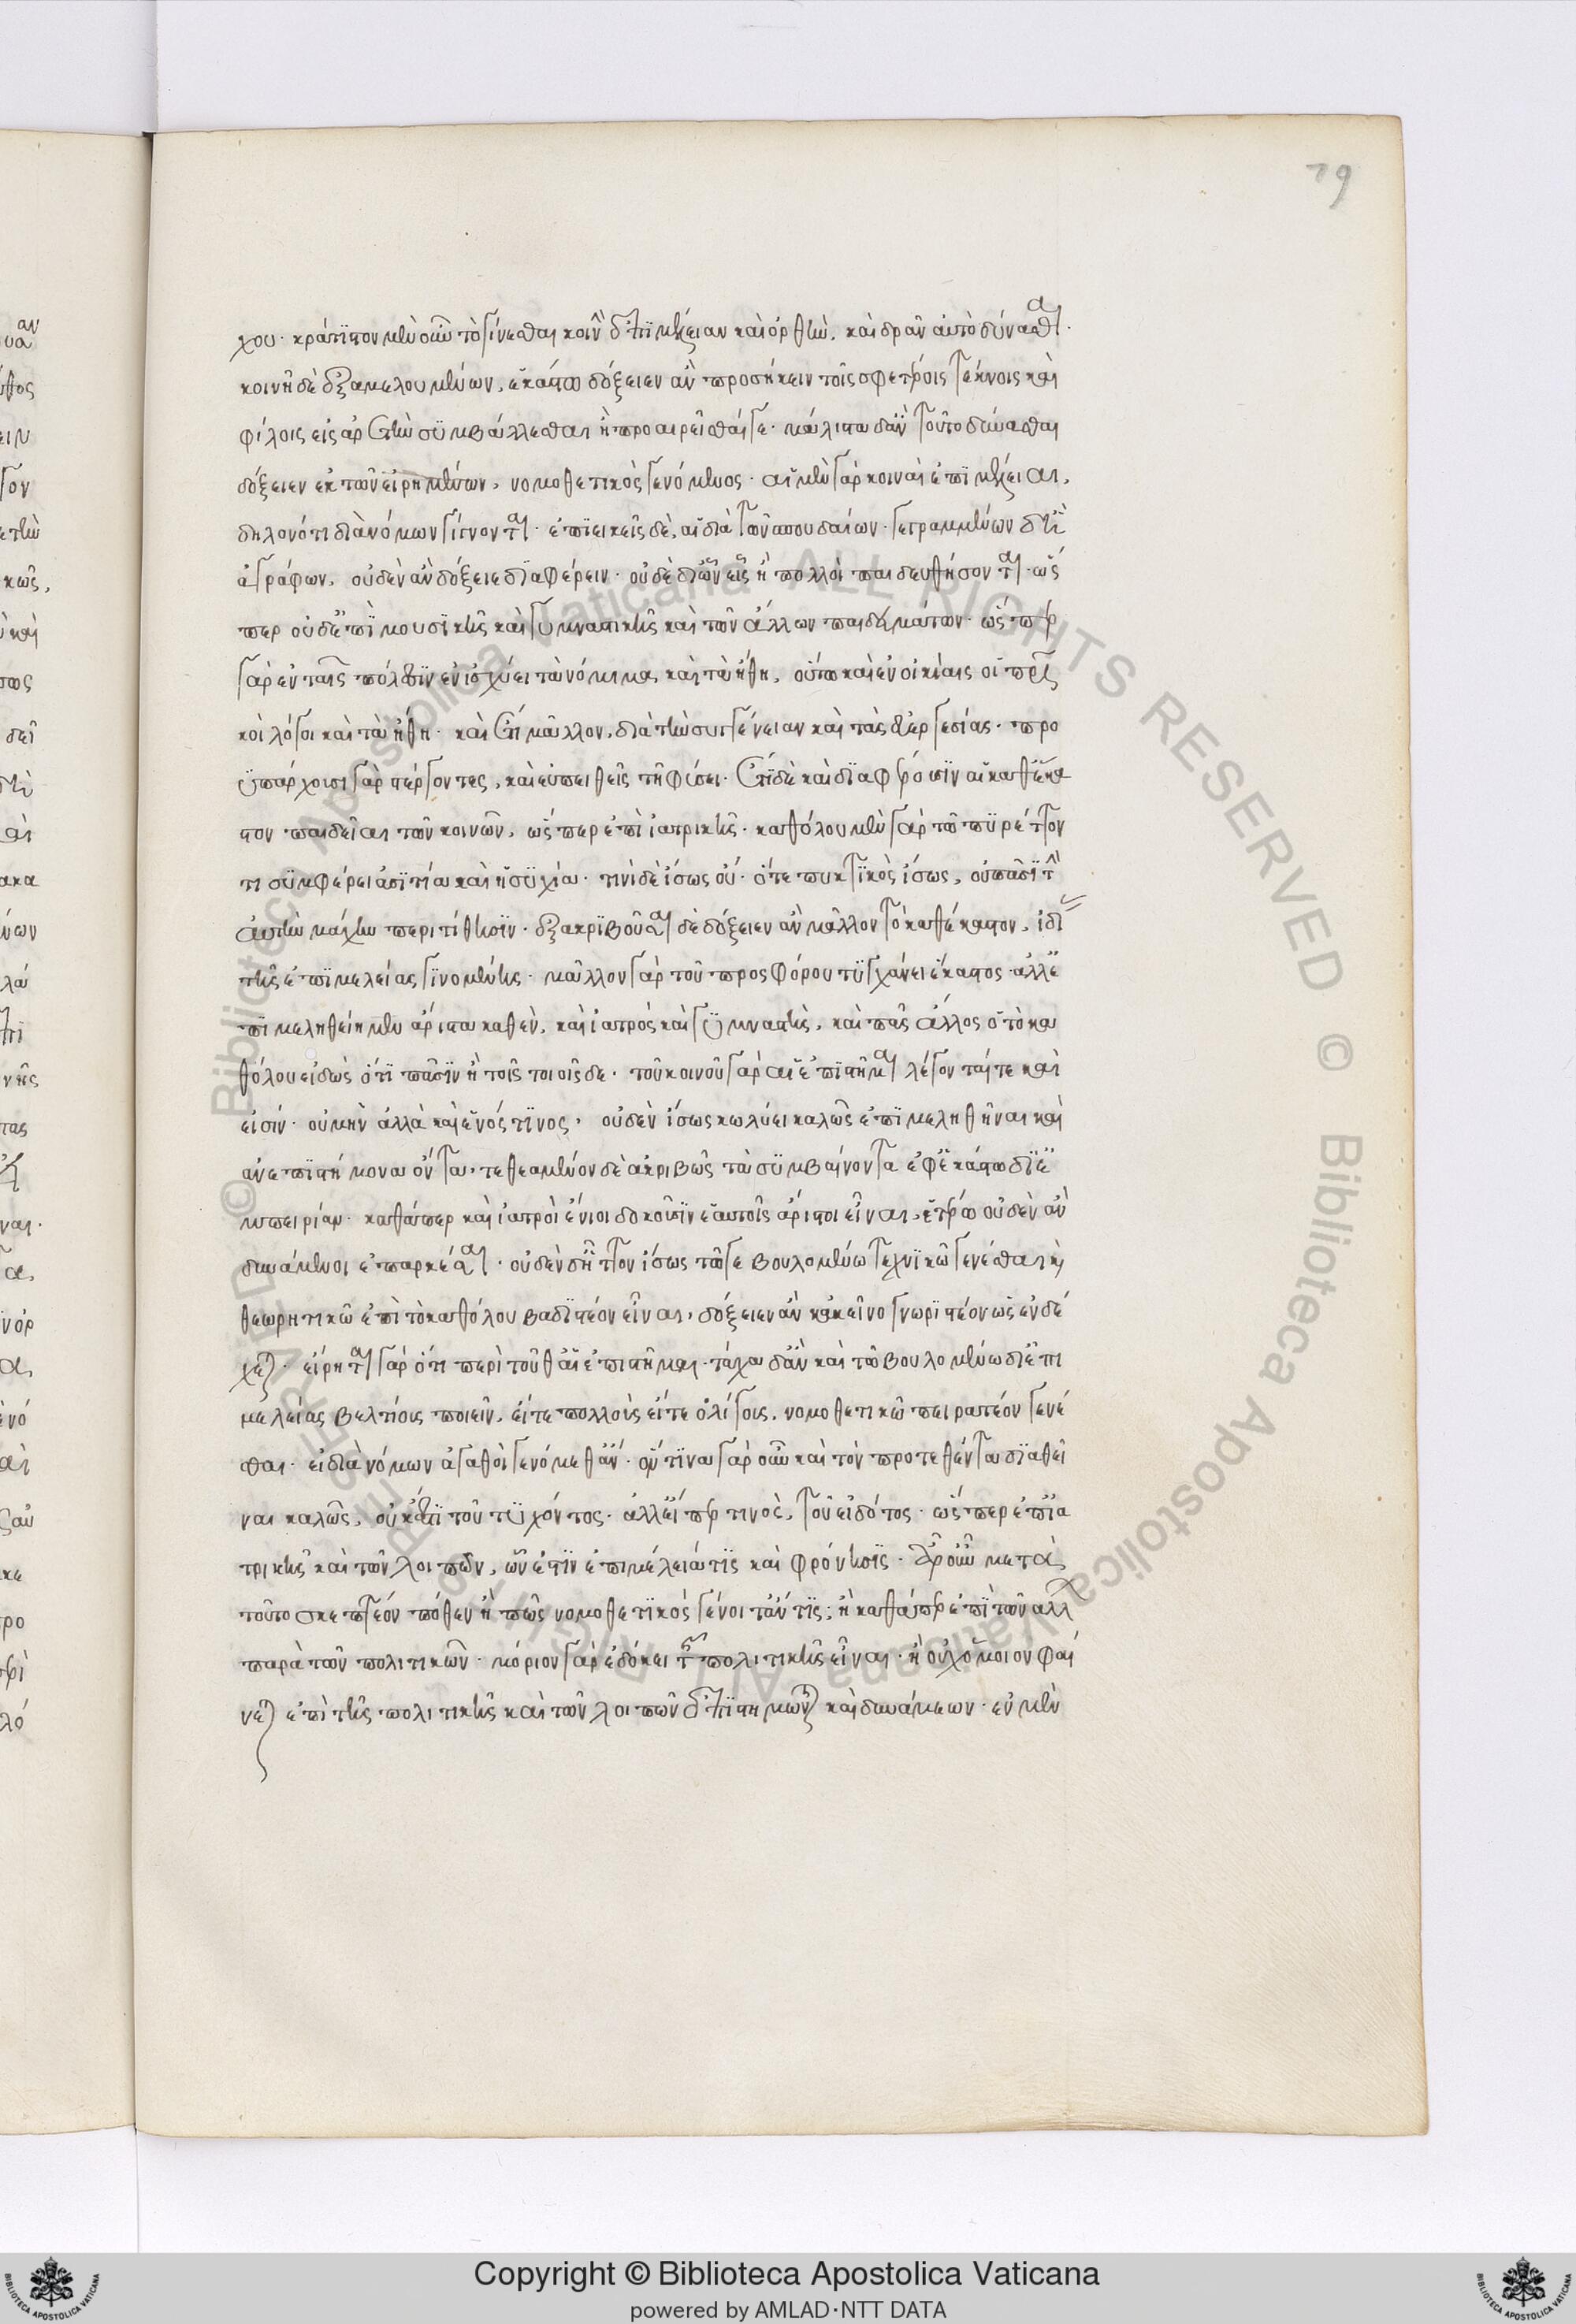 79
χου· κράτιστον μὲν οὖν τὸ γίνεσθαι κοινὴν ἐπιμέλειαν καὶ ὀρθὴν, καὶ δρᾶν αὐτὸ δύνασθαι·
κοινῆ δὲ ἐξαμελουμένων, ἑκάστω δόξειεν ἂν προσήκειν τοῖς σφετέροις τέκνοις καὶ
φίλοις εἰς ἀρετὴν συμβάλλεσθαι ἢ προαιρεῖσθαί γε· μάλιστα δ' ἂν τοῦτο δύνασθαι
δόξειεν ἐκ τῶν εἰρημένων, νομοθετικὸς γενόμενος· αἱ μὲν γὰρ κοιναὶ ἐπιμέλειαι,
δηλονότι διὰ νόμων γίγνονται· ἐπιεικεῖς δὲ, αἱ διὰ τῶν σπουδαίων· γεγραμμένων δ' ἢ
ἀγράφων, οὐδὲν ἂν δόξειε διαφέρειν· οὐδὲ δι' ὧν εἷς ἢ πολλοὶ παιδευθήσονται· ὥσ
περ οὐδ' ἐπὶ μουσικῆς καὶ γυμναστικῆς καὶ τῶν ἄλλων παιδευμάτων· ὥσπερ
γὰρ ἐν ταῖς πόλεσιν ἐνισχύει τὰ νόμιμα καὶ τὰ ἤθη, οὕτω καὶ ἐν οἰκίαις οἱ πατρι
κοὶ λόγοι καὶ τὰ ἤθη· καὶ ἔτι μᾶλλον, διὰ τὴν συγγένειαν καὶ τὰς εὐεργεσίας· προ
ϋπάρχουσι γὰρ στέργοντες, καὶ εὐπειθεῖς τῆ φύσει· ἔτι δὲ καὶ διαφέρουσιν αἱ καθ' ἕκα
στον παιδεῖαι τῶν κοινῶν, ὥσπερ ἐπὶ ἰατρικῆς· καθόλου μὲν γὰρ τῶ πυρέττον
τι συμφέρει ἀσιτία καὶ ἡσυχία· τινὶ δὲ ἴσως οὔ· ὅ τε πυκτικὸς ἴσως, οὐ πᾶσι τὴν
αὐτὴν μάχην περιτίθησιν· ἐξακριβοῦσθαι δὲ δόξειεν ἂν μᾶλλον τὸ καθ' ἕκαστον, ἰδί
της ἐπιμελείας γινομένης· μᾶλλον γὰρ τοῦ προσφόρου τυγχάνει ἕκαστος· ἀλλ' ἐ
πιμεληθείη μὲν ἄριστα καθ' ἓν, καὶ ἰατρὸς καὶ γυμναστὴς, καὶ πᾶς ἄλλος ὁ τὸ κα
θόλου εἰδὼς ὅτι πᾶσιν ἢ τοῖς τοιοῖσδε· τοῦ κοινοῦ γὰρ αἱ ἐπιστῆμαι λέγονταί τε καὶ
εἰσίν· οὐ μὴν ἀλλὰ καὶ ἑνός τινος, οὐδὲν ἴσως κωλύει καλῶς ἐπιμεληθῆναι καὶ
ἀνεπιστήμονα ὄντα, τεθεαμένον δὲ ἀκριβῶς τὰ συμβαίνοντα ἐφ' ἑκάστω δι' ἐ
μπειρίαν· καθάπερ καὶ ἰατροὶ ἔνιοι δοκοῦσιν ἑαυτοῖς ἄριστοι εἶναι, ἑτέρω οὐδὲν ἂν
δυνάμενοι ἐπαρκέσαι· οὐδὲν δ' ἧττον ἴσως τῶ γε βουλομένω τεχνικῶ γενέσθαι καὶ
θεωρητικῶ ἐπὶ τὸ καθόλου βαδιστέον εἶναι, δόξειεν ἂν κἀκεῖνο γνωριστέον ὡς ἐνδέ
χεται· εἴρηται γὰρ ὅτι περὶ τοῦθ' αἱ ἐπιστῆμαι· τάχα δ' ἂν καὶ τῶ βουλομένω δι' ἐπι
μελείας βελτίους ποιεῖν, εἴτε πολλοὺς εἴτε ὀλίγους, νομοθετικῶ πειρατέον γενέ
σθαι· εἰ διὰ νόμων ἀγαθοὶ γενόμεθ' ἄν· ὅντινα γὰρ οὖν καὶ τὸν προτεθέντα διαθεῖ
ναι καλῶς, οὐκ ἔστι τοῦ τυχόντος· ἀλλ' εἴπερ τινὸς, τοῦ εἰδότος· ὥσπερ ἐπ' ἰα
τρικῆς καὶ τῶν λοιπῶν, ὧν ἔστιν ἐπιμέλειά τις καὶ φρόνησις· ἆρ' οὖν μετὰ
τοῦτο σκεπτέον πόθεν ἢ πῶς νομοθετικὸς γένοιτ' ἄν τις; ἢ καθάπερ ἐπὶ τῶν ἄλλων
παρὰ τῶν πολιτικῶν· μόριον γὰρ ἐδόκει τῆς πολιτικῆς εἶναι· ἢ οὐχ ὅμοιον φαί
νεται ἐπὶ τῆς πολιτικῆς καὶ τῶν λοιπῶν ἐπιστημῶν καὶ δυνάμεων· ἐν μὲν
© Biblioteca Apostolica Vaticana ALL RIGHTS RESERVED
Copyright © Biblioteca Apostolica Vaticana
powered by AMLAD·NTT DATA